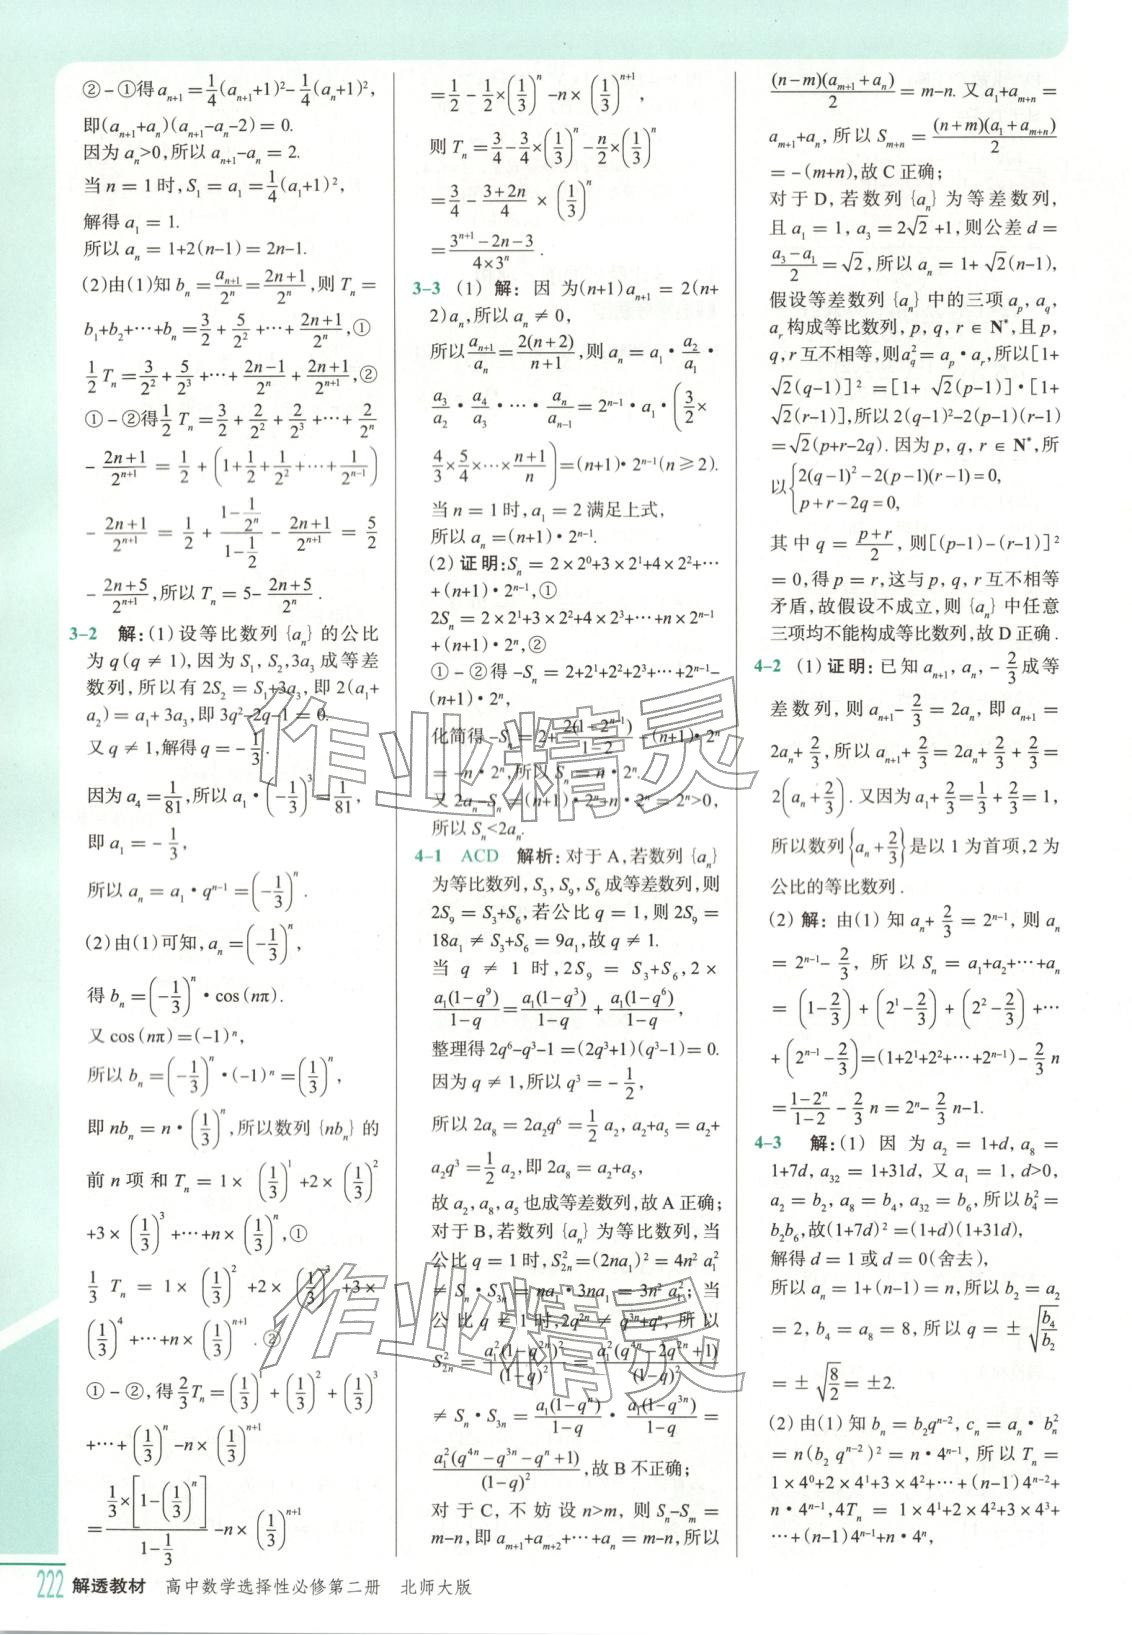 ②-①得a_{n+1}=1/4(a_{n+1}+1)²-1/4(a_n+1)²,
即(a_{n+1}+a_n)(a_{n+1}-a_n-2)=0.
因为a_n>0,所以a_{n+1}-a_n=2.
当n=1时,S₁=a₁=1/4(a₁+1)²,
解得a₁=1.
所以a_n=1+2(n-1)=2n-1.
(2)由(1)知b_n=a_{n+1}/2^n=(2n+1)/2^n,则T_n=
b₁+b₂+⋯+b_n=3/2+5/2²+⋯+(2n+1)/2^n,①
1/2 T_n=3/2²+5/2³+⋯+(2n-1)/2^n+(2n+1)/2^{n+1},②
①-②得1/2 T_n=3/2+2/2²+2/2³+⋯+2/2^n
-(2n+1)/2^{n+1}=1/2+(1+1/2+1/2²+⋯+1/2^{n-1})
-(2n+1)/2^{n+1}=1/2+(1-1/2^n)/(1-1/2)-(2n+1)/2^{n+1}=5/2
-(2n+5)/2^{n+1},所以T_n=5-(2n+5)/2^n.
3-2 解:(1)设等比数列{a_n}的公比
为q(q≠1),因为S₁,S₂,3a₃成等差
数列,所以有2S₂=S₁+3a₃,即2(a₁+
a₂)=a₁+3a₃,即3q²-2q-1=0.
又q≠1,解得q=-1/3.
因为a₄=1/81,所以a₁·(-1/3)³=1/81,
即a₁=-1/3,
所以a_n=a₁·q^{n-1}=(-1/3)^n.
(2)由(1)可知,a_n=(-1/3)^n,
得b_n=(-1/3)^n·cos(nπ).
又cos(nπ)=(-1)^n,
所以b_n=(-1/3)^n·(-1)^n=(1/3)^n,
即nb_n=n·(1/3)^n,所以数列{nb_n}的
前n项和T_n=1×(1/3)¹+2×(1/3)²
+3×(1/3)³+⋯+n×(1/3)^n,①
1/3 T_n=1×(1/3)²+2×(1/3)³+3×
(1/3)⁴+⋯+n×(1/3)^{n+1}.②
①-②,得2/3 T_n=(1/3)¹+(1/3)²+(1/3)³
+⋯+(1/3)^n-n×(1/3)^{n+1}
=1/3×[1-(1/3)^n]/(1-1/3)-n×(1/3)^{n+1}
=1/2-1/2×(1/3)^n-n×(1/3)^{n+1},
则T_n=3/4-3/4×(1/3)^n-n/2×(1/3)^n
=3/4-(3+2n)/4×(1/3)^n
=(3^{n+1}-2n-3)/(4×3^n).
3-3 (1)解:因为(n+1)a_{n+1}=2(n+
2)a_n,所以a_n≠0,
所以a_{n+1}/a_n=2(n+2)/(n+1),则a_n=a₁·a₂/a₁·
a₃/a₂·a₄/a₃·⋯·a_n/a_{n-1}=2^{n-1}·a₁·(3/2×
4/3×5/4×⋯×(n+1)/n)=(n+1)·2^{n-1}(n≥2).
当n=1时,a₁=2满足上式,
所以a_n=(n+1)·2^{n-1}.
(2)证明:S_n=2×2⁰+3×2¹+4×2²+⋯
+(n+1)·2^{n-1},①
2S_n=2×2¹+3×2²+4×2³+⋯+n×2^{n-1}
+(n+1)·2^n,②
①-②得-S_n=2+2¹+2²+2³+⋯+2^{n-1}-
(n+1)·2^n,
化简得-S_n=2+2(1-2^{n-1})/(1-2)-(n+1)·2^n
=-n·2^n,所以S_n=n·2^n.
又2a_n-S_n=(n+1)·2^n-n·2^n=2^n>0,
所以S_n<2a_n.
4-1 ACD 解析:对于A,若数列{a_n}
为等比数列,S₃,S₉,S₆成等差数列,则
2S₉=S₃+S₆,若公比q=1,则2S₉=
18a₁≠S₃+S₆=9a₁,故q≠1.
当q≠1时,2S₉=S₃+S₆,2×
a₁(1-q⁹)/(1-q)=a₁(1-q³)/(1-q)+a₁(1-q⁶)/(1-q),
整理得2q⁶-q³-1=(2q³+1)(q³-1)=0.
因为q≠1,所以q³=-1/2,
所以2a₈=2a₂q⁶=1/2 a₂,a₂+a₅=a₂+
a₂q³=1/2 a₂,即2a₈=a₂+a₅,
故a₂,a₈,a₅也成等差数列,故A正确;
对于B,若数列{a_n}为等比数列,当
公比q=1时,S²_{2n}=(2na₁)²=4n²a₁²
≠S_n·S_{3n}=na₁·3na₁=3n²a₁²;当
公比q≠1时,2q^{2n}≠q^{3n}+q^n,所以
S²_{2n}=a₁²(1-q^{2n})²/(1-q)²=a₁²(q^{4n}-2q^{2n}+1)/(1-q)²
≠S_n·S_{3n}=a₁(1-q^n)/(1-q)·a₁(1-q^{3n})/(1-q)=
a₁²(q^{4n}-q^{3n}-q^n+1)/(1-q)²,故B不正确;
对于C,不妨设n>m,则S_n-S_m=
m-n,即a_{m+1}+a_{m+2}+⋯+a_n=m-n,所以
(n-m)(a_{m+1}+a_n)/2=m-n.又a₁+a_{m+n}=
a_{m+1}+a_n,所以S_{m+n}=(n+m)(a₁+a_{m+n})/2
=-(m+n),故C正确;
对于D,若数列{a_n}为等差数列,
且a₁=1,a₃=2√2+1,则公差d=
(a₃-a₁)/2=√2,所以a_n=1+√2(n-1),
假设等差数列{a_n}中的三项a_p,a_q,
a_r构成等比数列,p,q,r∈N*,且p,
q,r互不相等,则a_q²=a_p·a_r,所以[1+
√2(q-1)]²=[1+√2(p-1)]·[1+
√2(r-1)],所以2(q-1)²-2(p-1)(r-1)
=√2(p+r-2q).因为p,q,r∈N*,所
以{2(q-1)²-2(p-1)(r-1)=0,
p+r-2q=0,
其中q=(p+r)/2,则[(p-1)-(r-1)]²
=0,得p=r,这与p,q,r互不相等
矛盾,故假设不成立,则{a_n}中任意
三项均不能构成等比数列,故D正确.
4-2 (1)证明:已知a_{n+1},a_n,-2/3成等
差数列,则a_{n+1}-2/3=2a_n,即a_{n+1}=
2a_n+2/3,所以a_{n+1}+2/3=2a_n+2/3+2/3=
2(a_n+2/3).又因为a₁+2/3=1/3+2/3=1,
所以数列{a_n+2/3}是以1为首项,2为
公比的等比数列.
(2)解:由(1)知a_n+2/3=2^{n-1},则a_n
=2^{n-1}-2/3,所以S_n=a₁+a₂+⋯+a_n
=(1-2/3)+(2¹-2/3)+(2²-2/3)+⋯
+(2^{n-1}-2/3)=(1+2¹+2²+⋯+2^{n-1})-2/3 n
=(1-2^n)/(1-2)-2/3 n=2^n-2/3 n-1.
4-3 解:(1)因为a₂=1+d,a₈=
1+7d,a₃₂=1+31d,又a₁=1,d>0,
a₂=b₂,a₈=b₄,a₃₂=b₆,所以b₄²=
b₂b₆,故(1+7d)²=(1+d)(1+31d),
解得d=1或d=0(舍去),
所以a_n=1+(n-1)=n,所以b₂=a₂
=2,b₄=a₈=8,所以q=±√(b₄/b₂)
=±√(8/2)=±2.
(2)由(1)知b_n=b₂q^{n-2},c_n=a_n·b_n²
=n(b₂q^{n-2})²=n·4^{n-1},所以T_n=
1×4⁰+2×4¹+3×4²+⋯+(n-1)4^{n-2}+
n·4^{n-1},4T_n=1×4¹+2×4²+3×4³+
⋯+(n-1)4^{n-1}+n·4^n,
作业精灵
作业精灵
222 解透教材 高中数学选择性必修第二册 北师大版